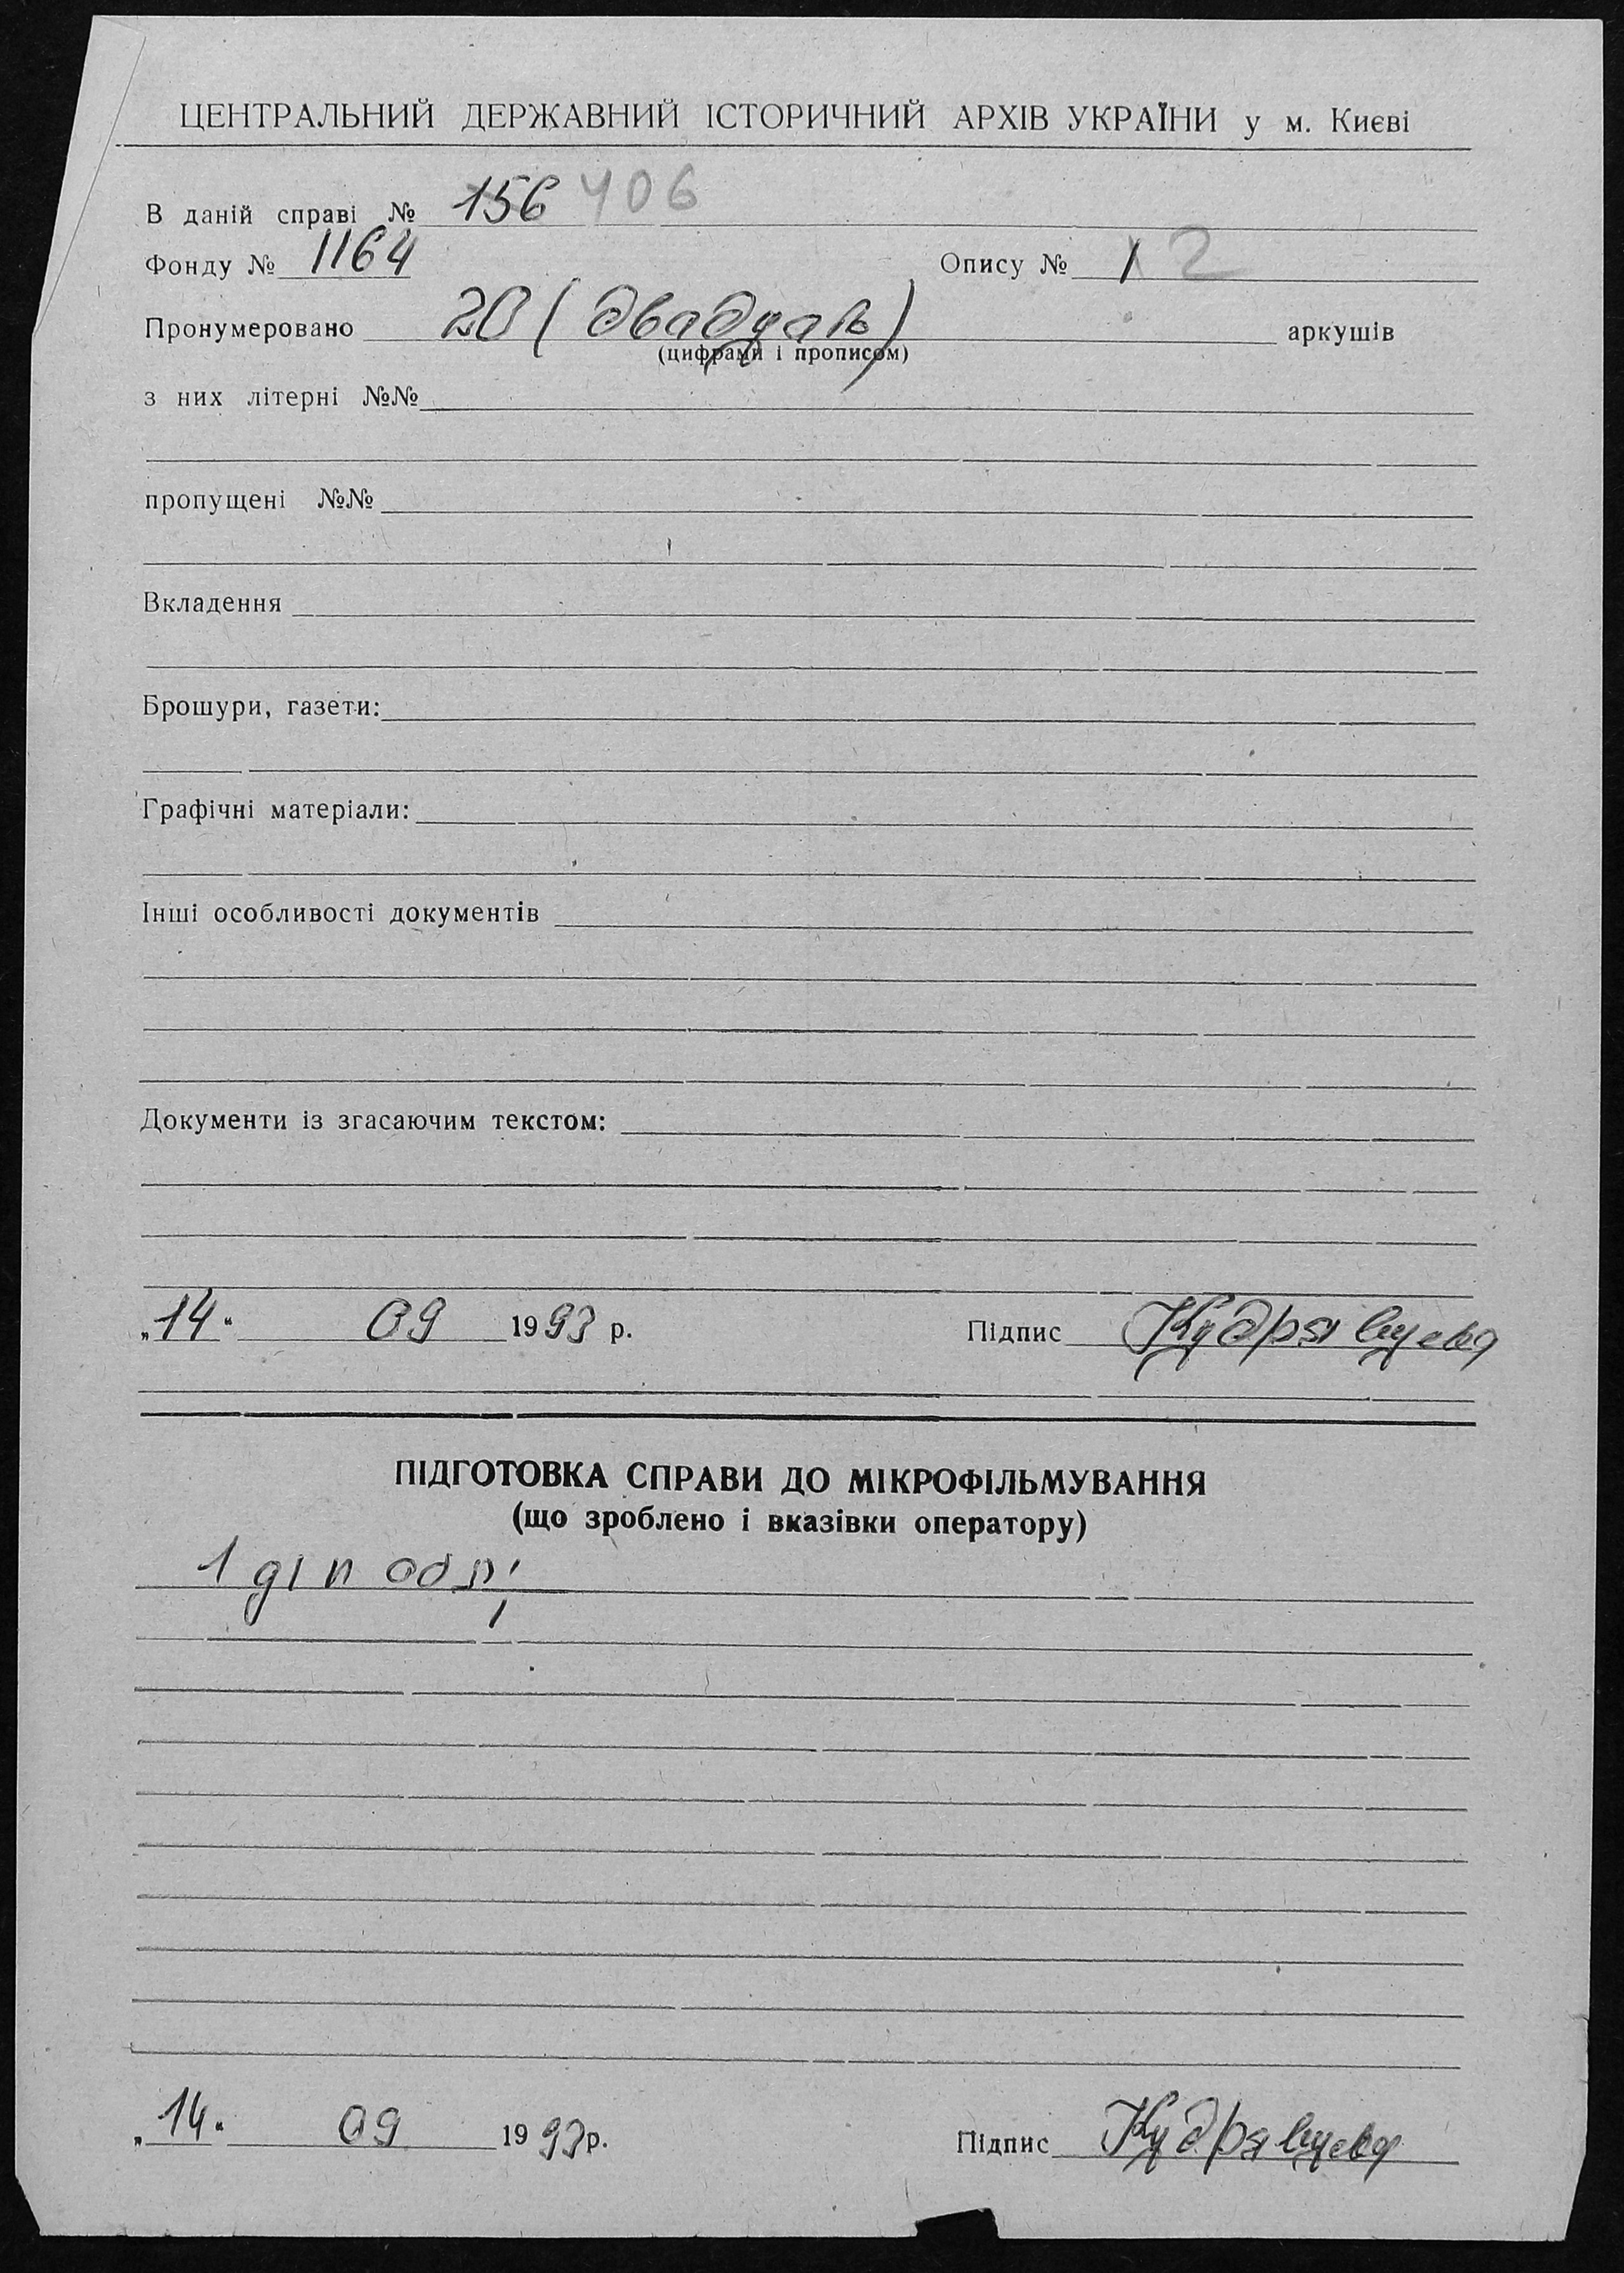 ЦЕНТРАЛЬНИЙ ДЕРЖАВНИЙ ІСТОРИЧНИЙ АРХІВ УКРАЇНИ у м. Києві
В даній справі № 156 406
Фонду № 1164 Опису № 1 2
Пронумеровано 20 (двадцать) аркушів
(цифрами і прописом)
з них літерні №№
пропущені №№
Вкладення
Брошури, газети:
Графічні матеріали:
Інші особливості документів
Документи із згасаючим текстом:
„14“ 09 1993 р. Підпис Кудрявцева
ПІДГОТОВКА СПРАВИ ДО МІКРОФІЛЬМУВАННЯ
(що зроблено і вказівки оператору)
1
„14“ 09 1993 р. Підпис Кудрявцева